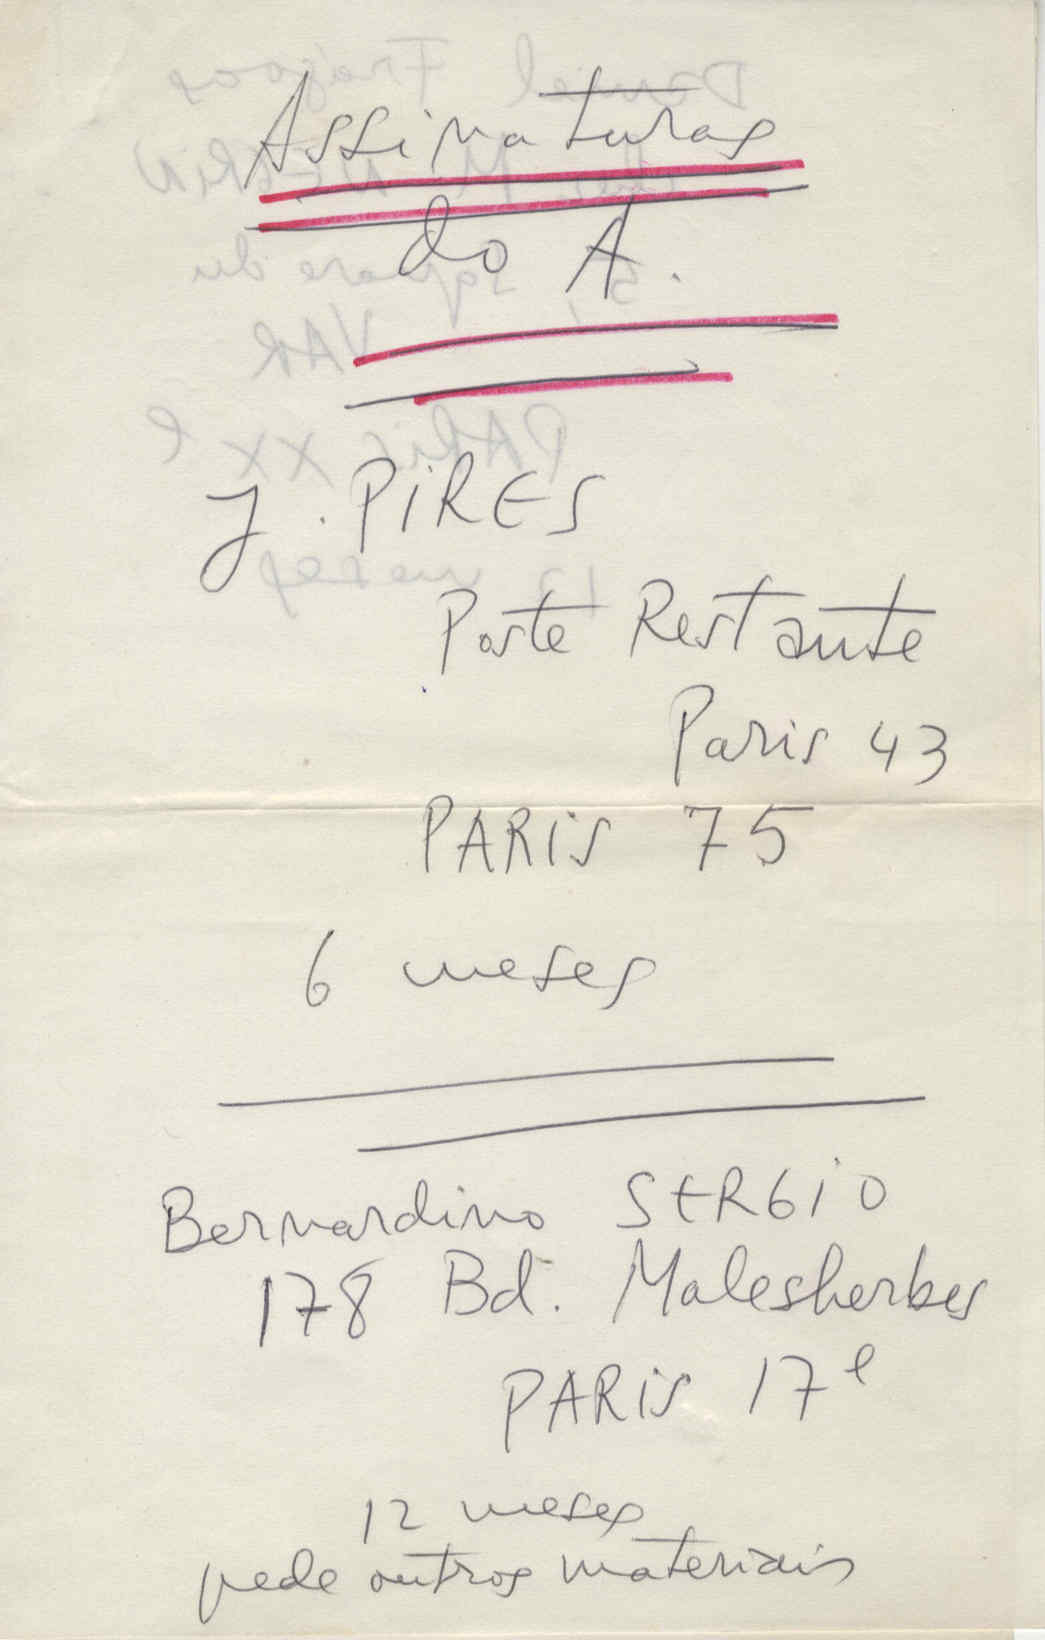 Assinaturas
do A.
J. PIRES
Poste Restante
Paris 43
PARIS 75
6 meses
Bernardino SERGIO
178 Bd. Malesherbes
PARIS 17e
12 meses
pede outros materiais